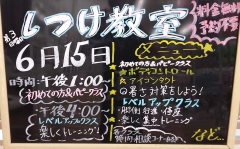 第3
しつけ教室
料金無料
予約不要
6月15日
時間:午後1:00~
初めての方&パピークラス
午後4:00~
レベルアップクラス
楽しくトレーニング!
メニュー
初めての方&パピークラス
★ボディコントロール
★アイコンタクト
◎暑さ対策をしよう!
レベルアップクラス
★脚側行進・待座
★楽しく集中トレーニング
など…